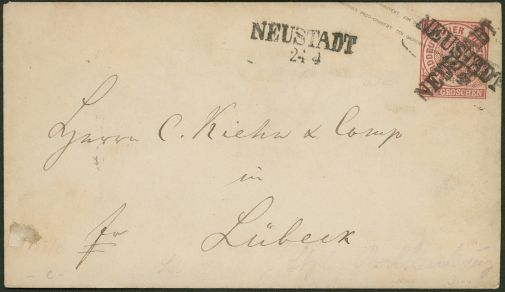 NEUSTADT
24 4
NEUSTADT
GROSCHEN
Herrn C. Kiehn & Comp
in
fr
Lübeck